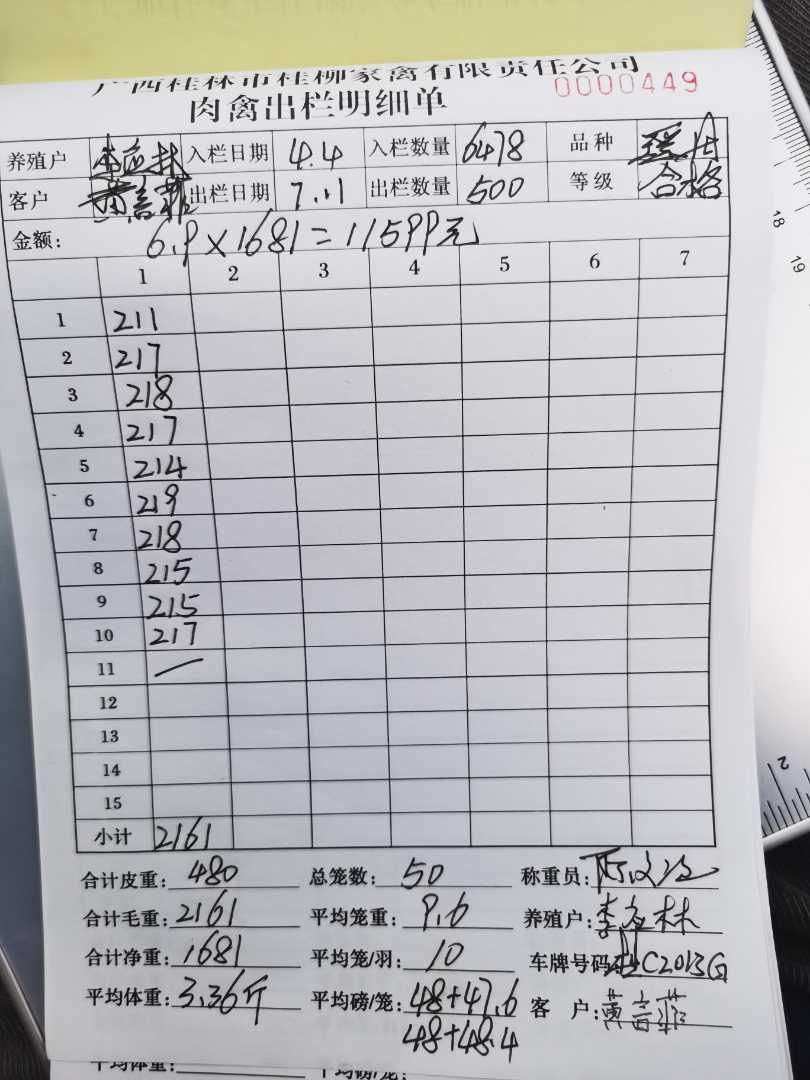 广西桂林市桂柳家禽有限责任公司
肉禽出栏明细单 0000449
养殖户 李应林 入栏日期 4.4 入栏数量 6478 品种
客户 出栏日期 7.11 出栏数量 500 等级 合格
金额: 6.9×1681=11599元
1 2 3 4 5 6 7
1 211
2 217
3 218
4 217
5 214
6 219
7 218
8 215
9 215
10 217
11 —
12
13
14
15
小计 2161
合计皮重: 480 总笼数: 50 称重员:
合计毛重: 2161 平均笼重: 9.6 养殖户: 李应林
合计净重: 1681 平均笼/羽: 10 车牌号码: C2013G
平均体重: 3.36斤 平均磅/笼: 48+47.6 客 户:
48+48.4
平均体重: 平均磅/笼:
18
19
2